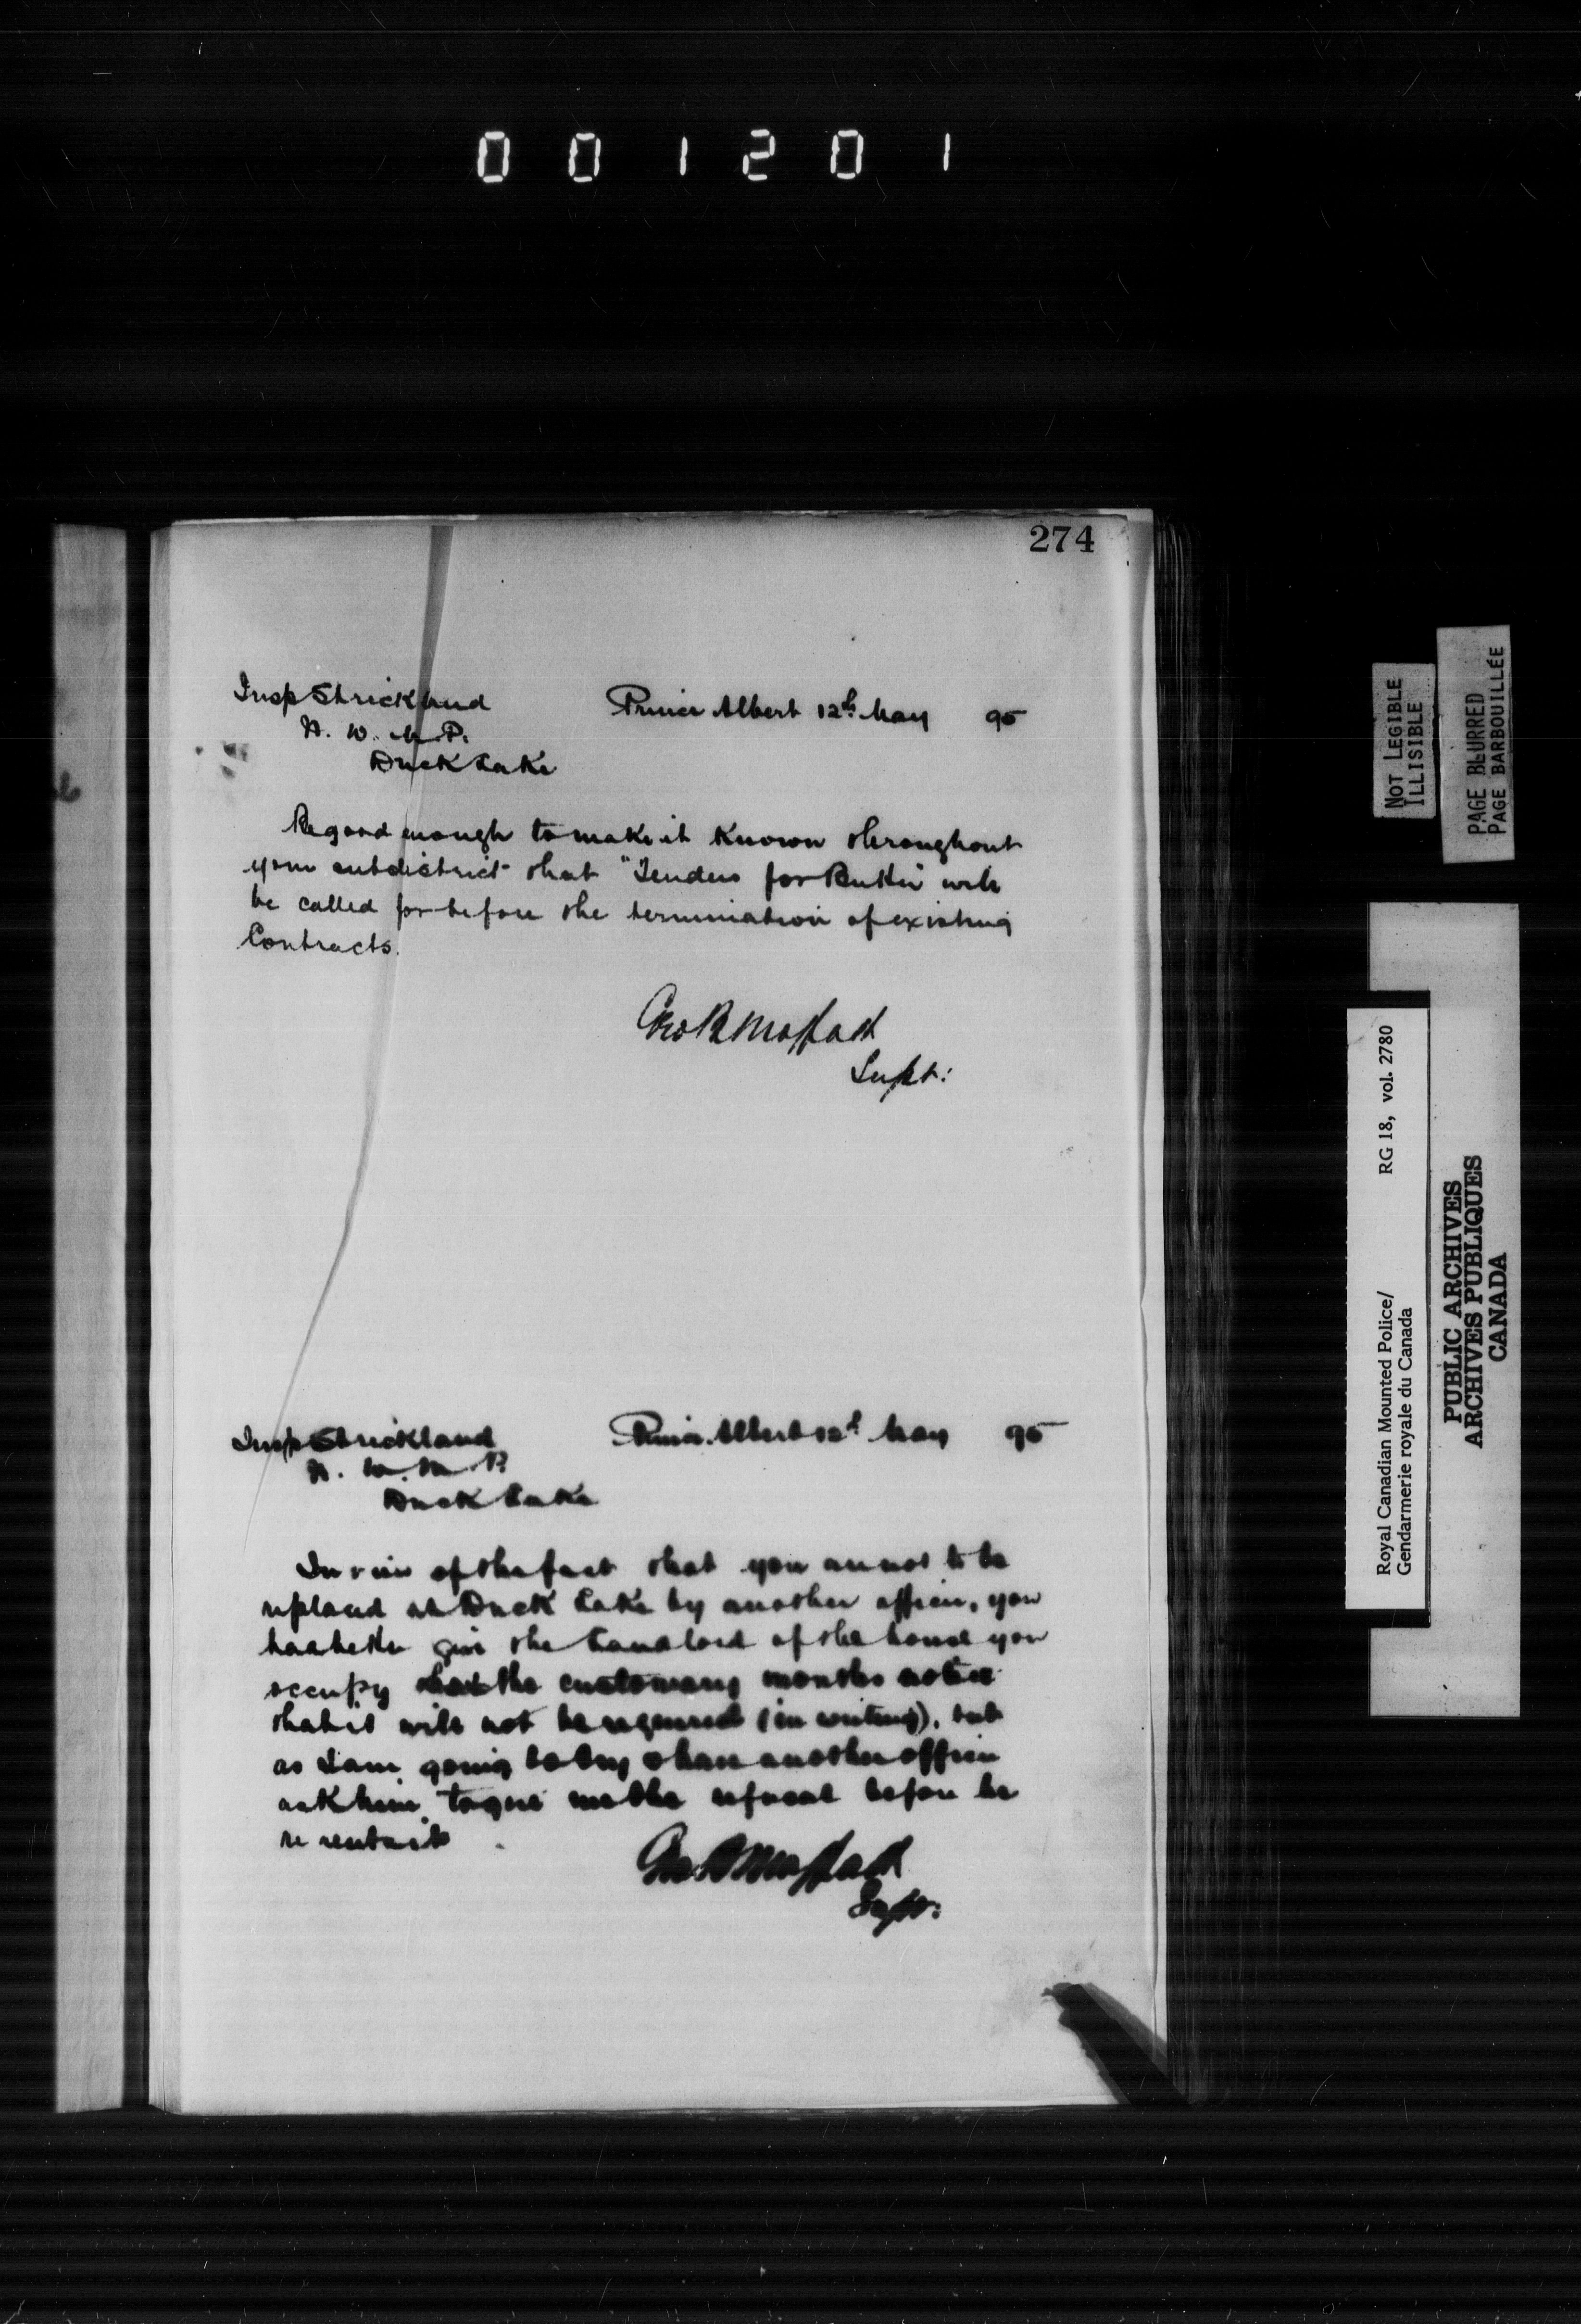 001201
274
Insp Strickland
N. W. M. P.
Duck Lake
Prince Albert 12th May 95
Be good enough to make it known throughout
your subdistrict that "Tenders for Butter" will
be called for before the termination of existing
Contracts.
Geo B Moffatt
Supt:
Insp Strickland
N. W. M. P.
Duck Lake
Prince Albert 12th May 95
In view of the fact that you are not to be
replaced at Duck Lake by another officer, you
give the Landlord of the house you
occupy the customary months notice
that it will not be required (in writing), but
as I am going to try & have another officer
ask him to give me the refusal before he
re rents it
Geo B Moffatt
Supt:
NOT LEGIBLE
ILLISIBLE
PAGE BLURRED
PAGE BARBOUILLÉE
Royal Canadian Mounted Police/
Gendarmerie royale du Canada
RG 18, vol. 2780
PUBLIC ARCHIVES
ARCHIVES PUBLIQUES
CANADA